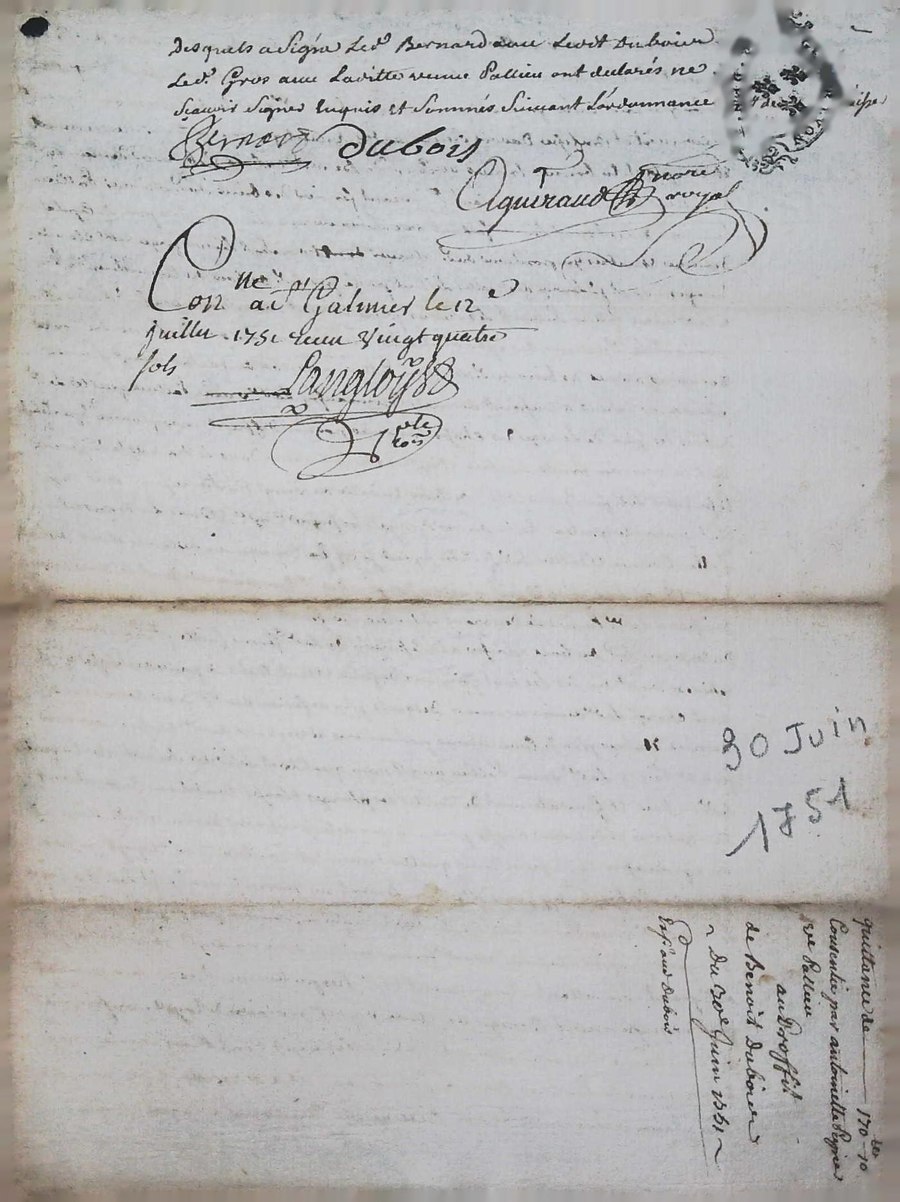 desquels a signé led. Bernard avec ledit Duboier
led. Gros avec Laditte veuve Pallieu ont declarés ne
sçavoir signer enquis et sommés suivant L'ordonnance
Bernard Dubois
Aguiraud nore
royal
Con lle a st Galmier le 12e
juillet 1751 Reçu vingt quatre
sols
Langloys
30 Juin
1751
quittance de 170 10
Consentie par antoinette
ve Pallieu
au Proffit
de Benoit Duboier
Du 30e Juin 1751
Dubois